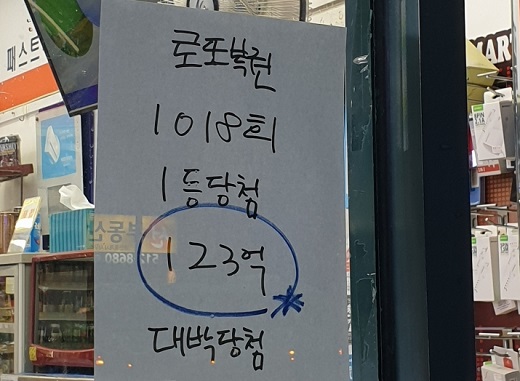 로또복권
1018회
1등당첨
123억
대박당첨
패스트
MAR
부동산
512 8680